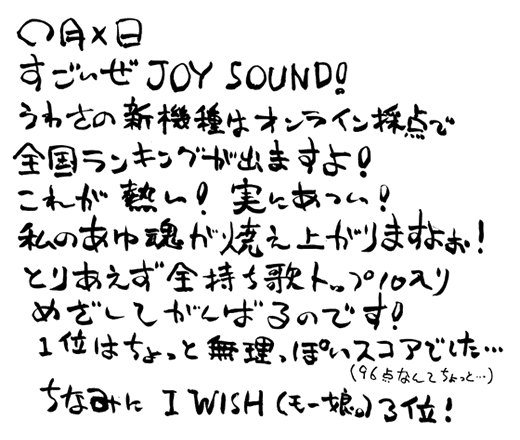 〇月×日
すごいぜ JOY SOUND!
うわさの新機種はオンライン採点で
全国ランキングが出ますよ!
これが熱い! 実にあつい!
私のあゆ魂が燃え上がりますよぉ!
とりあえず全持ち歌トップ10入り
めざしてがんばるのです!
1位はちょっと無理っぽいスコアでした…
(96点なんてちょっと…)
ちなみに I WISH (モー娘。) 3位!